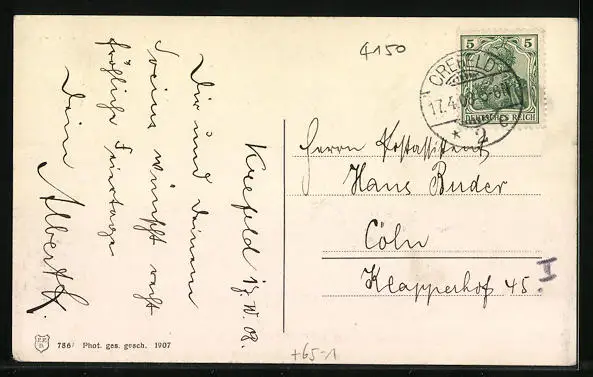 4150
5 5
DEUTSCHES REICH
CREFELD
17.4.08
2 c
Krefeld 17. IV 08.
Dir und Deinem
wünscht recht
fröhliche Feiertage
Dein Albert K.
Herrn Postassistent
Hans Buder
Cöln
Klapperhof 45. I
786 Phot. ges. gesch. 1907
+65-1